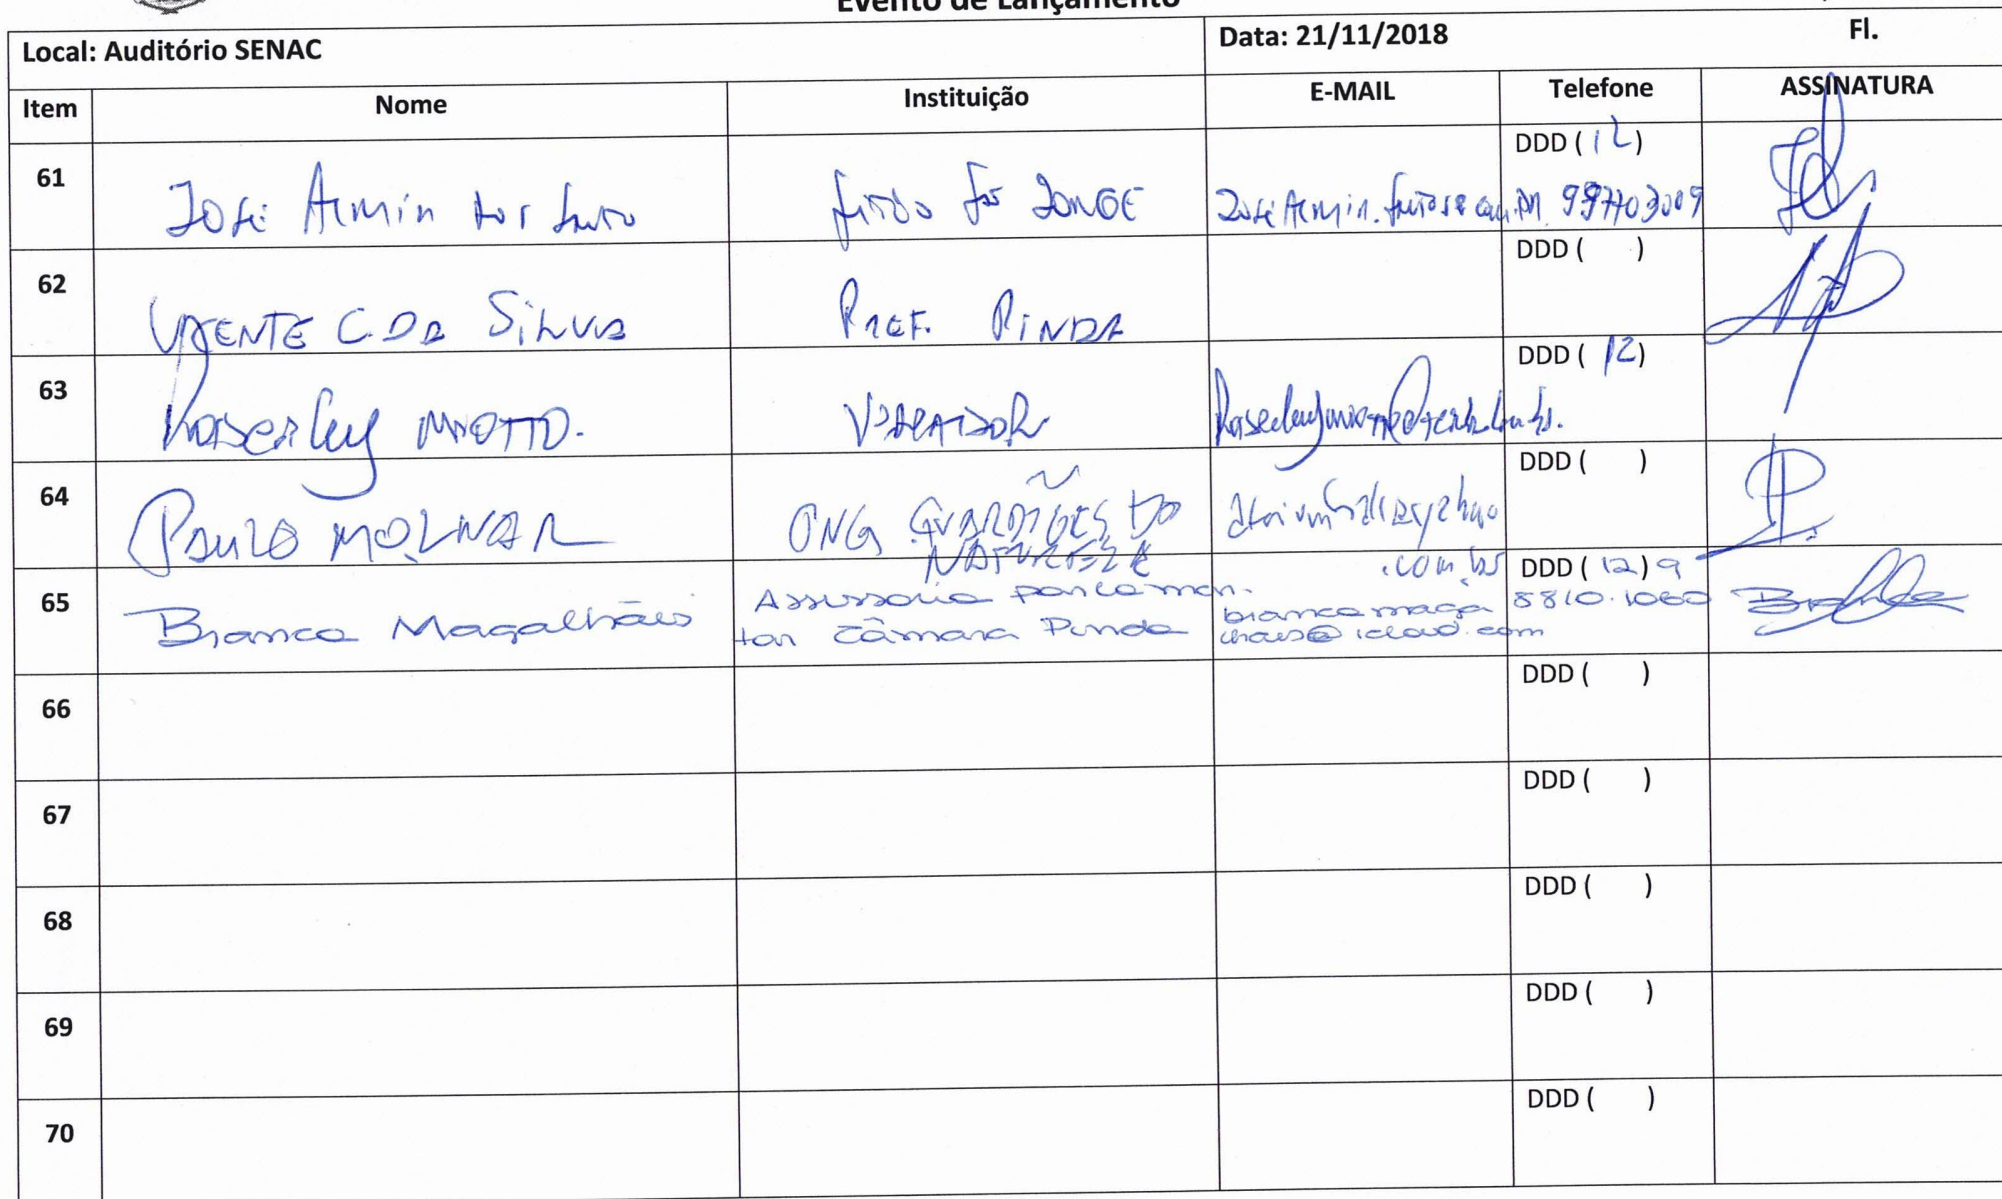 Evento de Lançamento
Local: Auditório SENAC Data: 21/11/2018 Fl.
Item Nome Instituição E-MAIL Telefone ASSINATURA
61 José Armin DDD (12)
997703009
62 VICENTE C. DA SILVA PREF. PINDA DDD ( )
63 Roserley MIOTTO. VEREADOR DDD (12)
64 PAULO MOLNAR ONG GUARDIÕES DA DDD ( )
NATUREZA .com.br
65 Bianca Magalhães Assessoria parlamen- DDD (12) 9
tar Câmara Pinda biancamaga 8810.1060
lhaes@icloud.com
66 DDD ( )
67 DDD ( )
68 DDD ( )
69 DDD ( )
70 DDD ( )